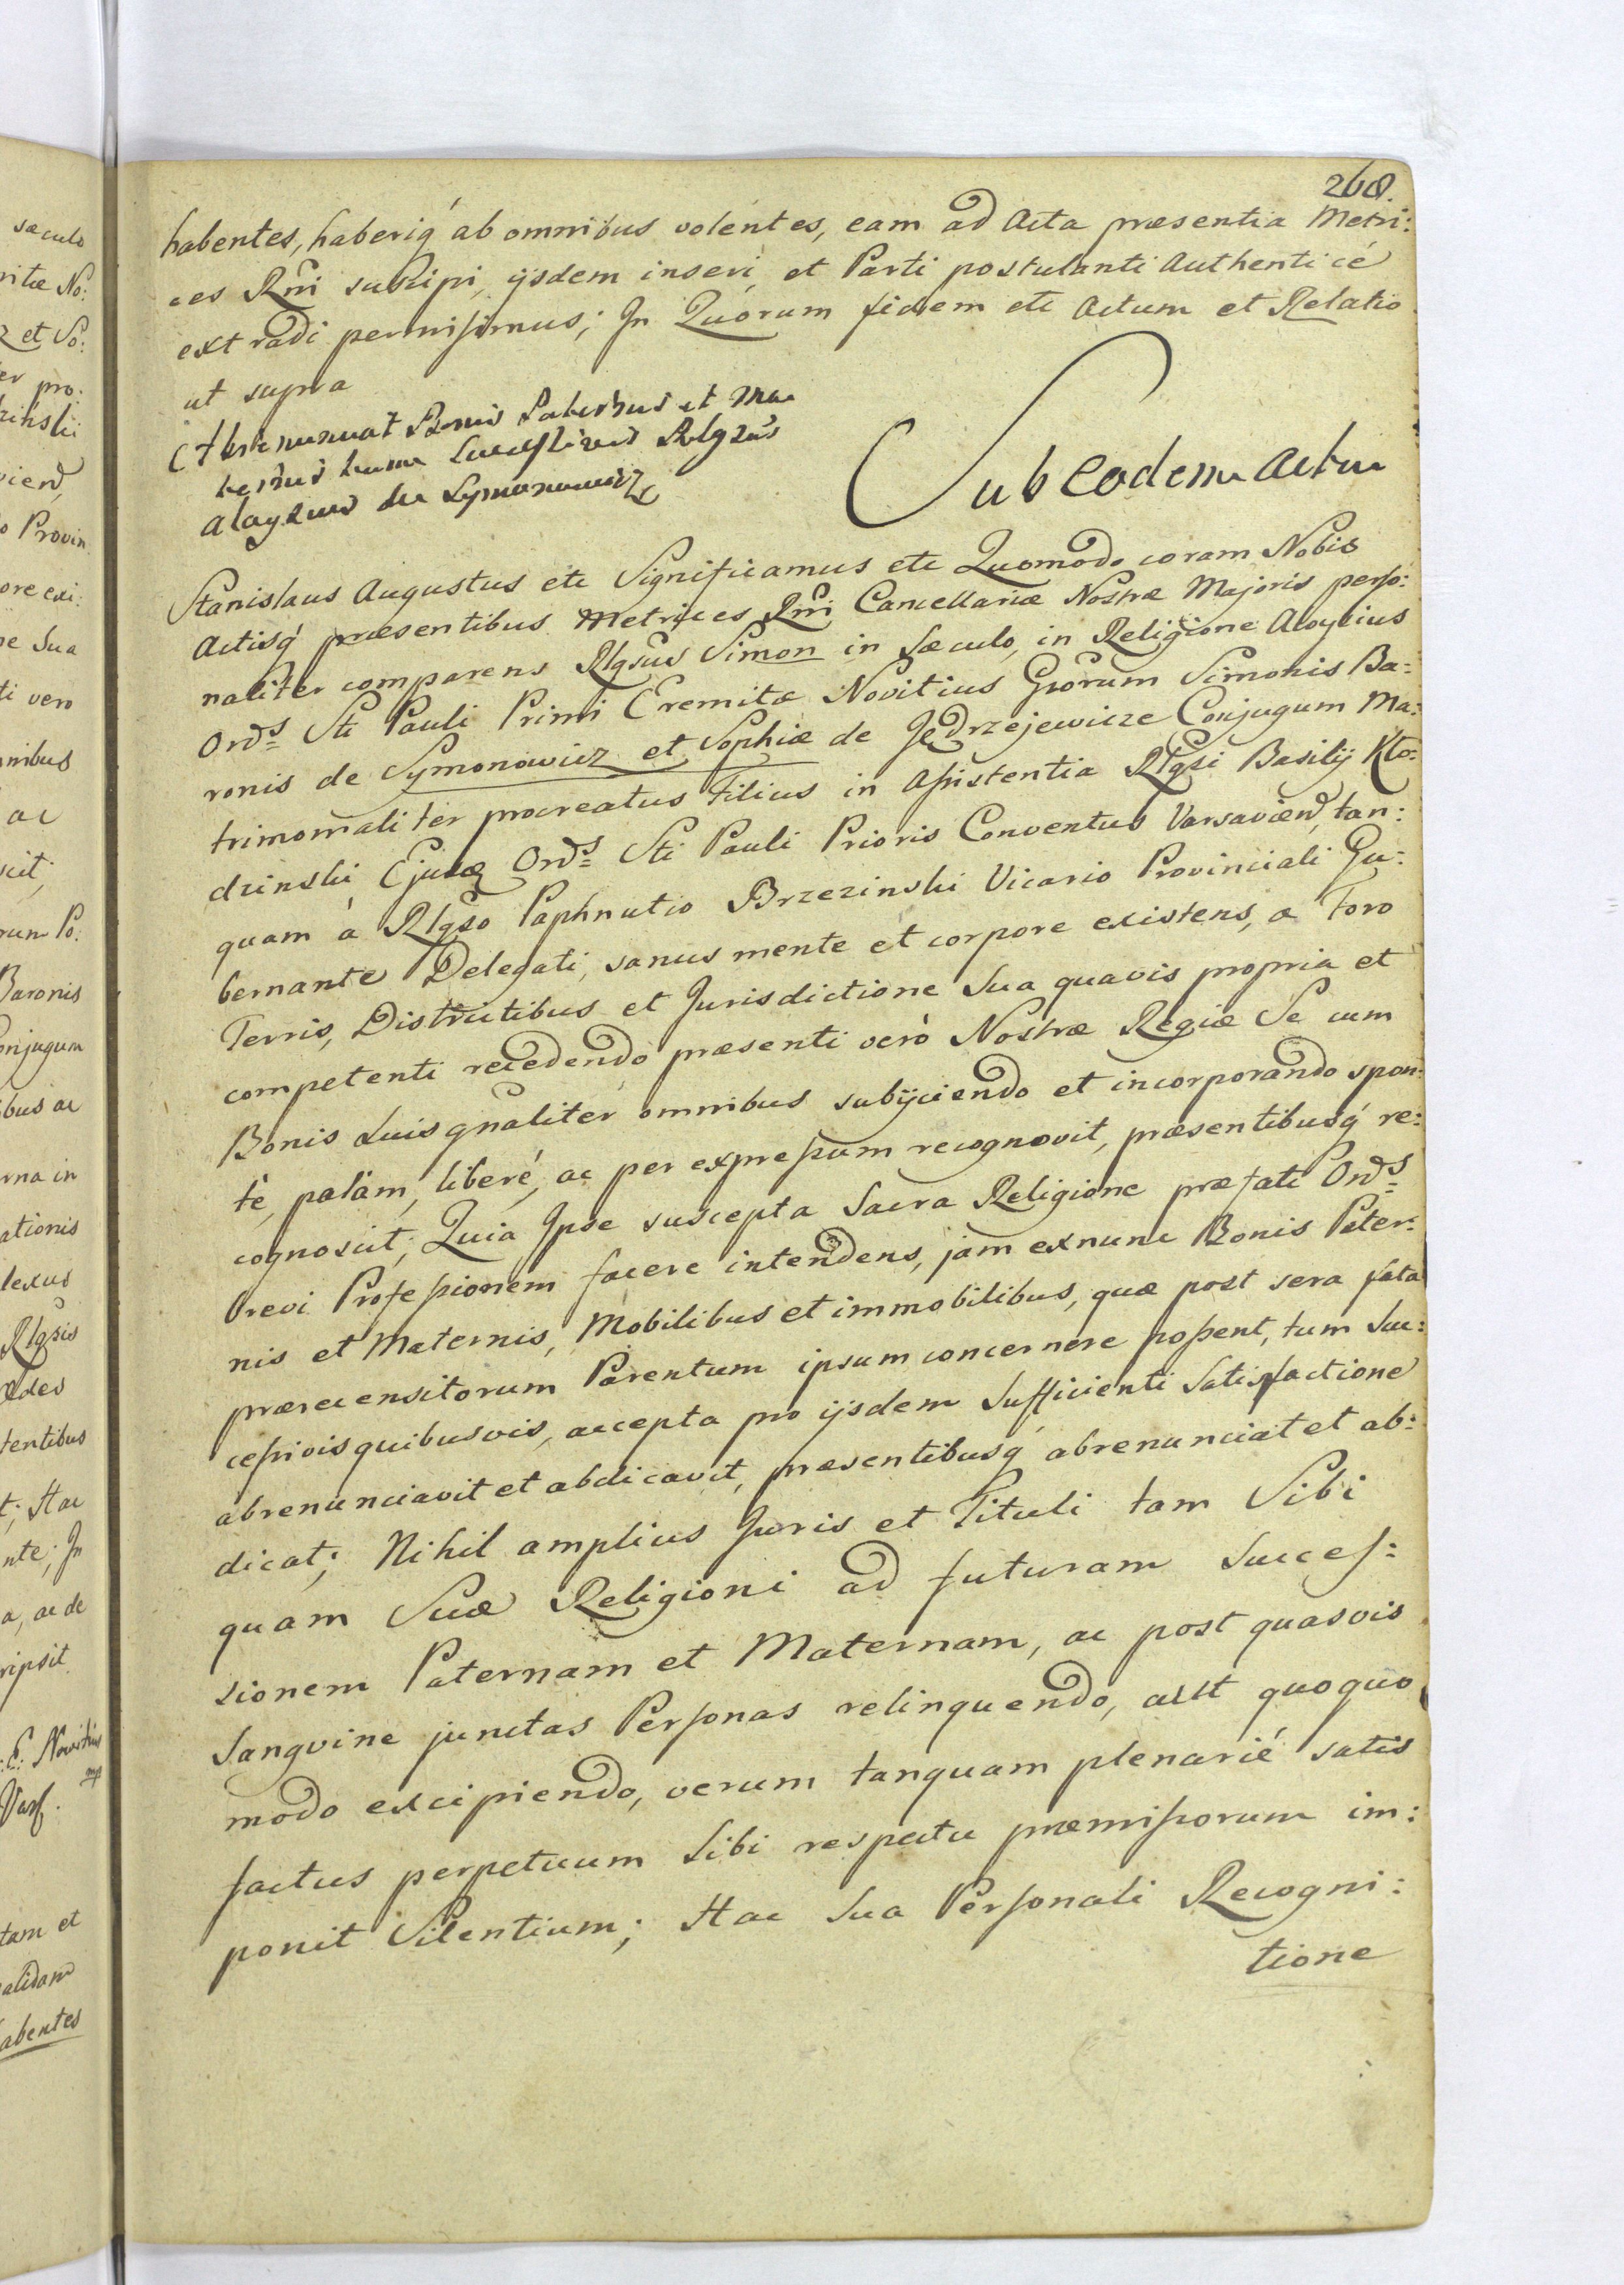 268.
habentes, haberiq́ ab omnibus volentes, eam ad Acta præsentia Metri:
ces Rñi suscipi, ijsdem inseri, et Parti postulanti Authenticè
extradi permisimus; In Quorum fidem etc Actum et Relatio
ut supra
Abrenunciat Bonis Paternis et Ma
ternis tum Successivis Rlgsus
Aloysius de Symonowicz
Sub eodem Actu
Stanislaus Augustus etc Significamus etc Quomodo coram Nobis
Actisq́ præsentibus Metrices Rñi Cancellariæ Nostræ Majoris perso:
naliter comparens Rlgsus Simon in Sæculo, in Religione Aloysius
Ord̃s Sti Pauli Primi Eremitæ Novitius Gsorum Simonis Ba:
ronis de Symonowicz et Sophiæ de Jędrzejewicze Conjugum Ma:
trimonialiter procreatus Filius in Assistentia Rlgsi Basilij Kło:
dzinski Ejusdẽ Ord̃s Sti Pauli Prioris Conventus Varsavien, tan:
quam à Rlgso Paphnutio Brzezinski Vicario Provinciali Gu:
bernante Delegati, sanus mente et corpore existens, a Foro
Terris, Districtibus et Jurisdictione Sua quavis propria et
competenti recedendo præsenti verò Nostræ Regiæ Se cum
Bonis Suis gñaliter omnibus subijciendo et incorporando spon:
tè, palàm, liberè, ac per expressum recognovit, præsentibusq́ re:
cognoscit; Quia Ipse suscepta Sacra Religione præfati Ord̃s
brevi Professionem facere intendens, jam exnunc Bonis Pater:
nis et Maternis, Mobilibus et immobilibus, quæ post sera fata
præcensitorum Parentum ipsum concernere possent, tum Suc:
cessivis quibusvis, accepta pro ijsdem Sufficienti Satisfactione
abrenunciavit et abdicavit, præsentibusq́ abrenunciat et ab:
dicat; Nihil amplius Juris et Tituli tam Sibi
quam Suæ Religioni ad futuram Succes:
sionem Paternam et Maternam, ac post quasvis
Sangvine junctas Personas relinquendo, aut quoquo
modo excipiendo, verum tanquam plenariè satis
factus perpetuum Sibi respectu præmissorum im:
ponit Silentium; Hac Sua Personali Recogni:
tione